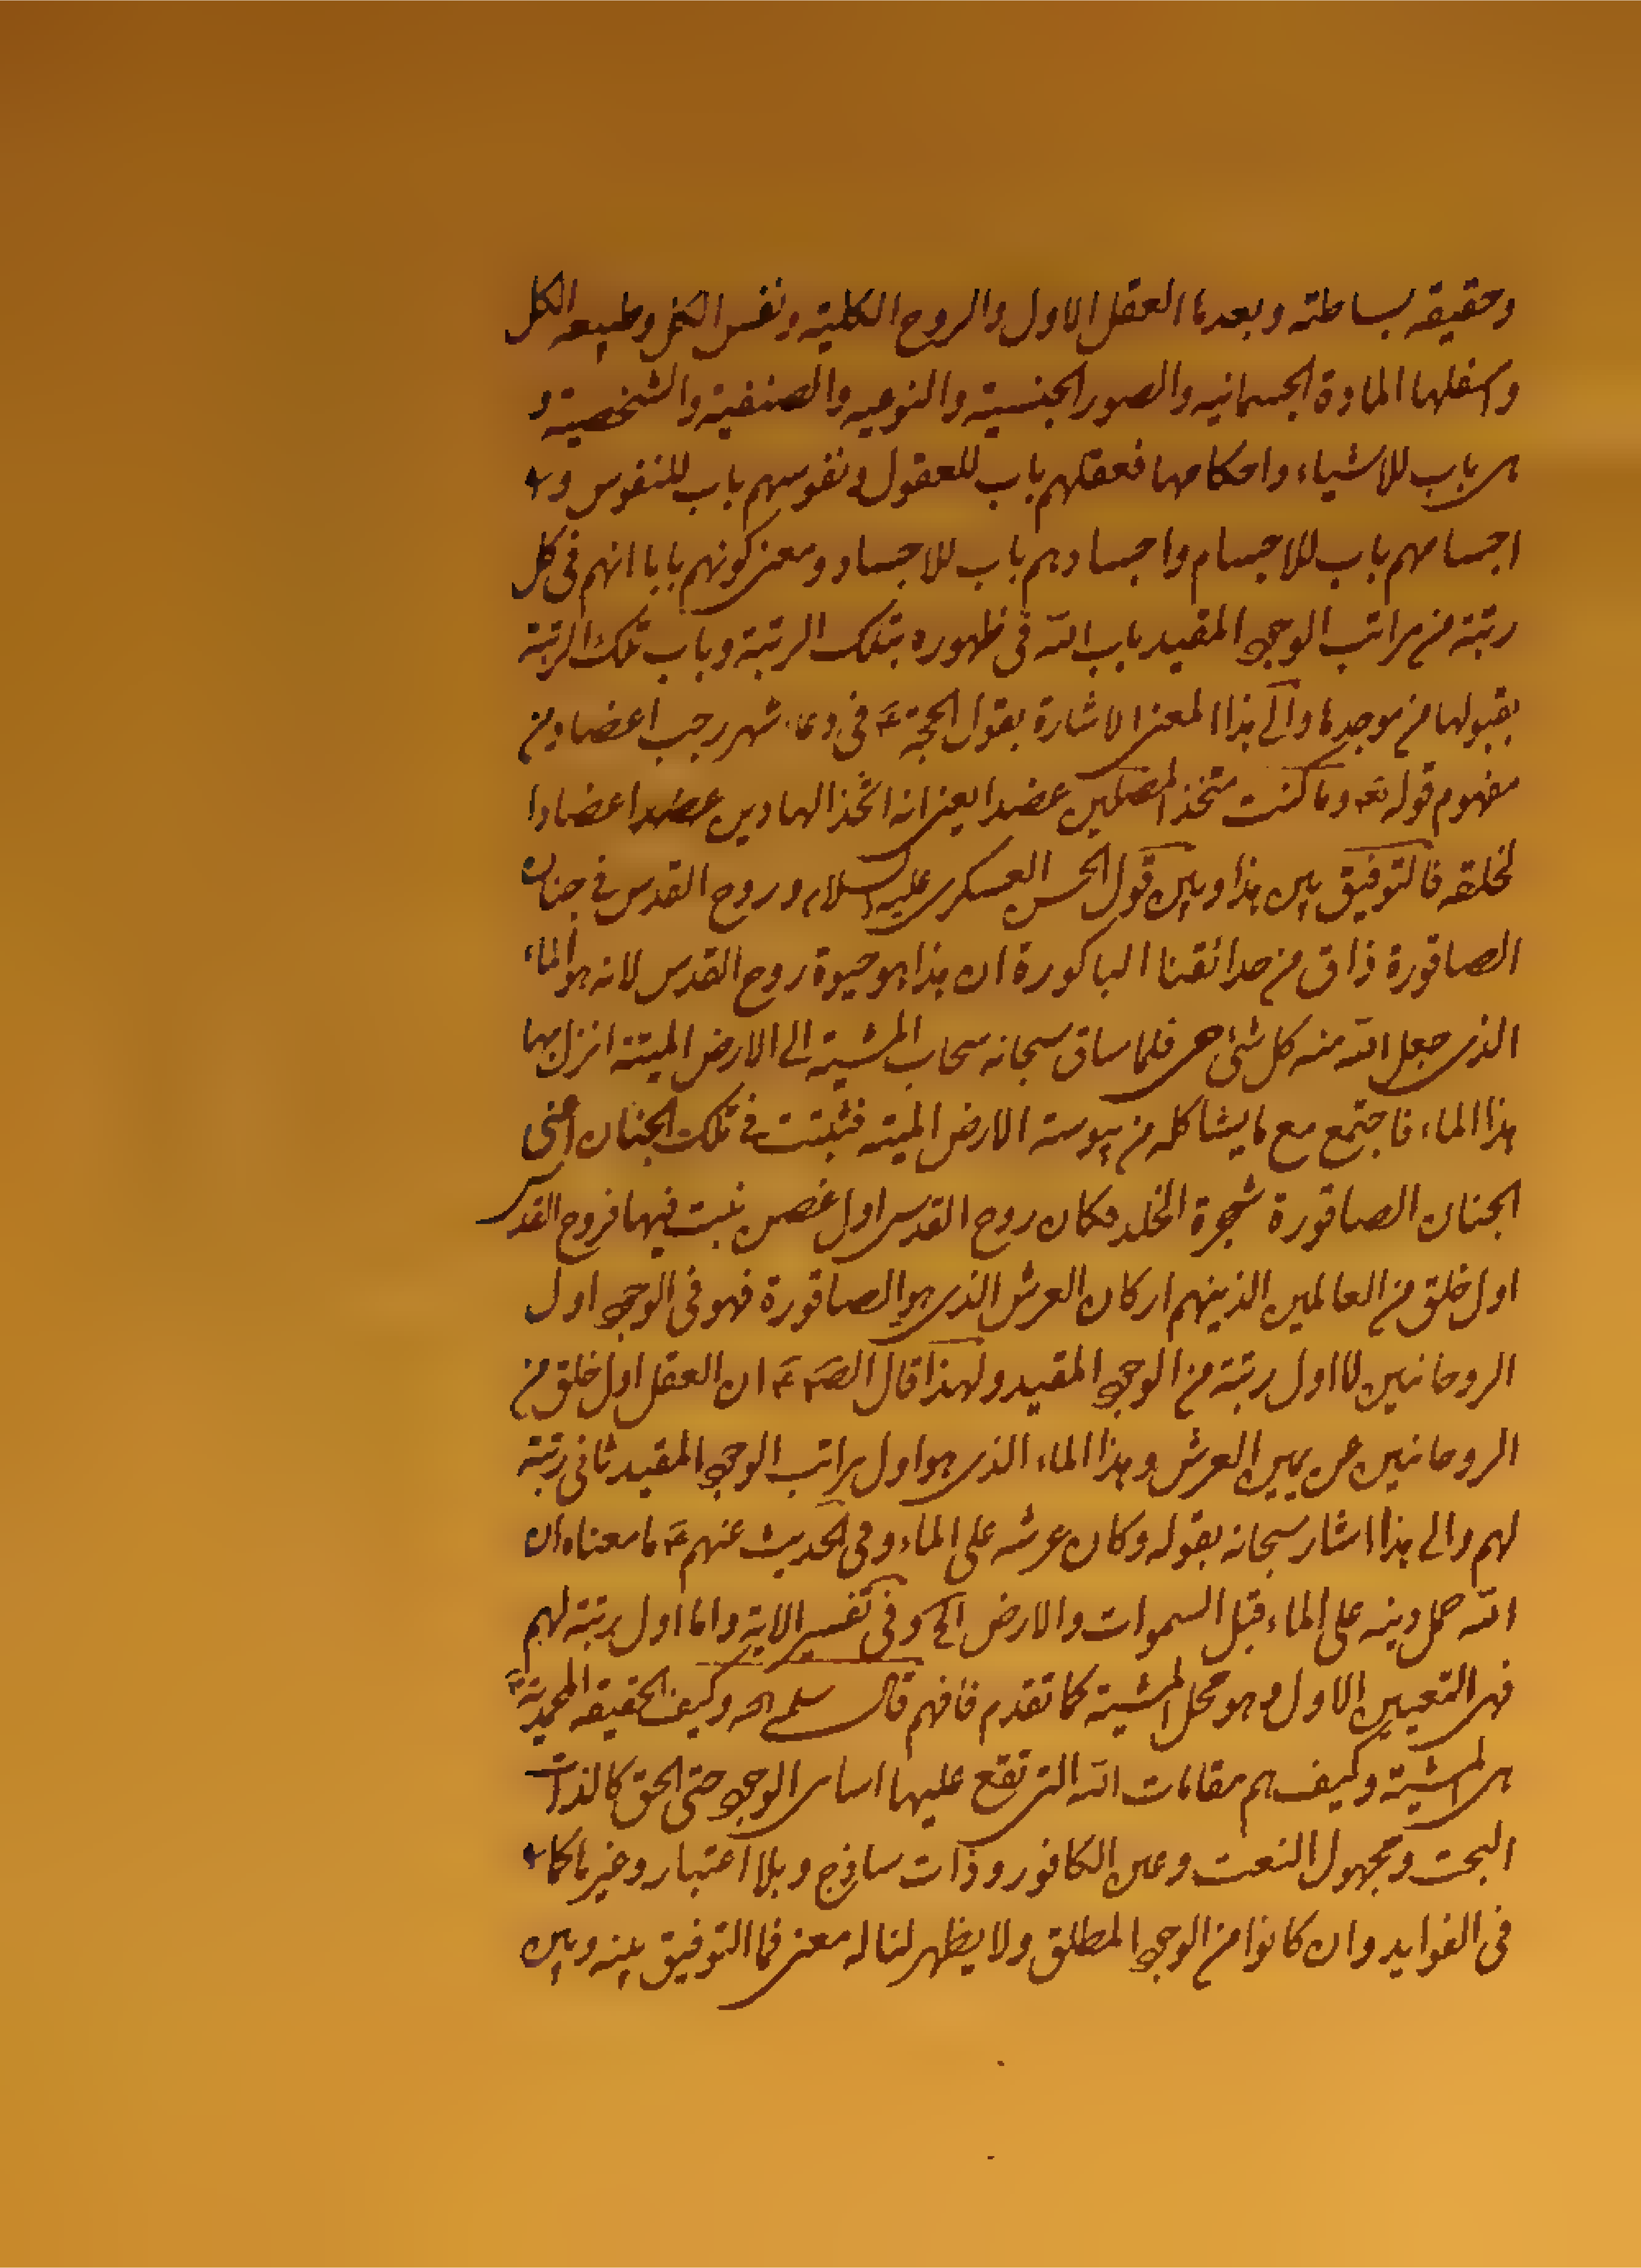 وحقيقه بساطته وبعدها العقل الاول والروح الكلية ونفس الكل وطبيعه الكل
واسفلها المادة الجسمانيه والصور الجنسية والنوعيه والصنفية والشخصية و
هى باب للاشياء واحكامها فعقلهم باب للعقول و نفوسهم باب للنفوس و
اجسامهم باب للاجسام واجسادهم باب للاجساد ومعنى كونهم بابا انهم فى كل
رتبة من مراتب الوجود المقيد باب الله فى ظهوره بتلك الرتبة وباب تلك الرتبة
بقبولها من موجدها والى هذا المعنى الاشارة بقول الحجة ع فى دعاء شهر رجب اعضاد من
مفهوم قوله تعه وما كنت متخذ المضلين عضدا يعنى انه اتخذ الهادين عضدا اعضادا
لخلقه فالتوفيق بين هذا وبين قول الحسن العسكرى عليه السلام وروح القدس فى جنان
الصاقورة ذاق من حدائقنا الباكورة ان هذا هو حيوة روح القدس لانه هو الماء
الذى جعل الله منه كل شئ حى فلما ساق سبحانه سحاب المشية الى الارض الميتة انزل بها
هذا الماء فاجتمع مع ما يشاكله من يبوسته الارض الميته فنبتت فى تلك الجنان اعنى
الجنان الصاقورة شجرة الخلد فكان روح القدس اول غصن نبت فيها فروح القدس
اول خلق من العالمين الذينهم اركان العرش الذى هو الصاقورة فهو فى الوجود اول
الروحانيين لا اول رتبة من الوجود المقيد ولهذا قال الص ع ان العقل اول خلق من
الروحانيين عن يمين العرش وهذا الماء الذى هو اول مراتب الوجود المقيد ثانى رتبة
لهم والى هذا اشار سبحانه بقوله وكان عرشه على الماء وفى الحديث عنهم ع ما معناه ان
الله حمل دينه على الماء قبل السموات والارض الخ وفى تفسير الاية واما اول رتبة لهم
فهى التعيين الاول وهو محل المشية كما تقدم فافهم قال سلمه الله وكيف الحقيقه المحمدية
هى المشية وكيف هم مقامات الله التى تقع عليها اسامى الوجود حتى الحق كالذات
البحت ومجهول النعت وعين الكافور وذات ساذج وبلا اعتبار وغيرها كما
فى الفوايد وان كانوا من الوجود المطلق ولا يظهر لنا له معنى فما التوفيق بينه وبين